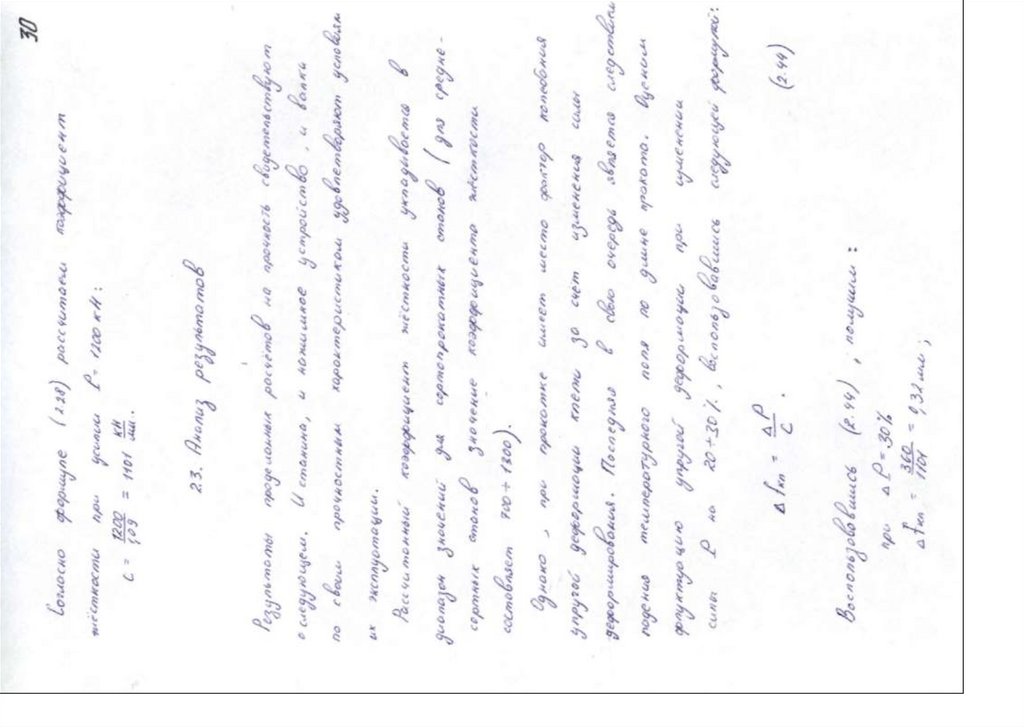 30
Согласно формуле (2.28) рассчитаем коэффициент
жёсткости при усилии P = 1200 кН:
C = 1200/1,09 = 1101 кН/мм.
2.3. Анализ результатов
Результаты проделанных расчётов на прочность свидетельствуют
о следующем. И станина, и нажимное устройство, и валки
по своим прочностным характеристикам удовлетворяют условиям
их эксплуатации.
Рассчитанный коэффициент жёсткости укладывается в
диапазон значений для сортопрокатных станов (для средне-
сортных станов значение коэффициента жёсткости
составляет 700÷1800).
Однако, при прокатке имеет место фактор колебания
упругой деформации клети за счет изменения силы
деформирования. Последняя в свою очередь является следствием
падения температурного поля по длине проката. Оценим
флуктуацию упругой деформации при изменении
силы P на 20÷30%, воспользовавшись следующей формулой:
Δfкл = ΔP/C . (2.44)
Воспользовавшись (2.44), получим:
при ΔP = 30%
Δfкл = 360/1101 = 0,32 мм;